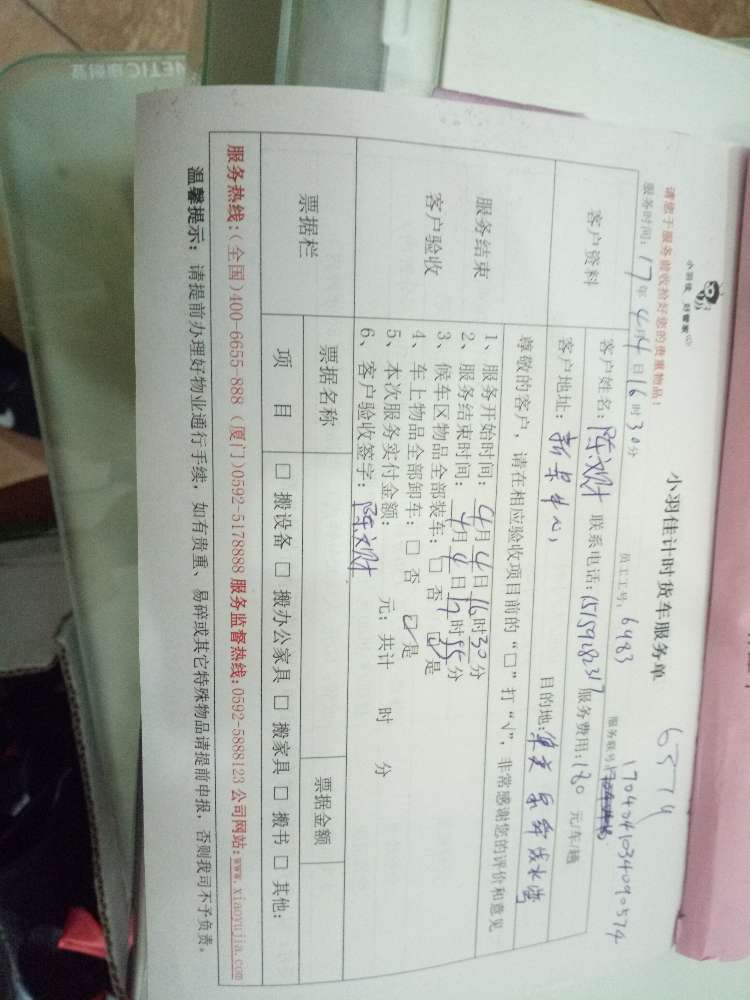 NETIC
小羽佳 好管家
小羽佳计时货车服务单
6374
请您于服务前收拾好您的贵重物品！
服务时间：17年4月4日16时30分 员工工号：6983 服务联号：1704041034090574
客户资料
客户姓名：陈刘财 联系电话：15159282317 服务费用：180 元/车/辆
客户地址：新景中心 目的地：
服务结束
客户验收
尊敬的客户，请在相应验收项目前的“□”打“√”，非常感谢您的评价和意见
1、服务开始时间：4月4日16时30分
2、服务结束时间：4月4日17时55分
3、候车区物品全部装车：□ 否 ☑是
4、车上物品全部卸车：□ 否 ☑是
5、本次服务实付金额： 元；共计 时 分
6、客户验收签字：陈刘财
票据栏
票据名称 票据金额
项 目 □ 搬设备 □ 搬办公家具 □ 搬家具 □ 搬书 □ 其他：
服务热线:(全国)400-6655-888 (厦门)0592-5178888 服务监督热线:0592-5888123 公司网站:www.xiaoyujia.com
温馨提示：请提前办理好物业通行手续，如有贵重、易碎或其它特殊物品请提前申报，否则我司不予负责。